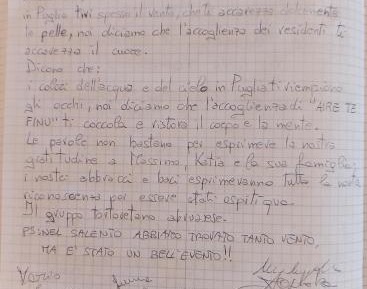 in Puglia tira spesso il vento, che ti accarezza dolcemente
la pelle, noi diciamo che l'accoglienza dei residenti ti
accarezza il cuore.
Dicono che:
i colori dell'acqua e del cielo in Puglia ti riempiono
gli occhi, noi diciamo che l'accoglienza di "AIRE TE
FINU" ti coccola e ristora il corpo e la mente.
Le parole non bastano per esprimere la nostra
gratitudine a Massimo, Katia e la sua famiglia;
i nostri abbracci e baci esprimeranno tutta la nostra
riconoscenza per essere stati ospiti qua.
Il gruppo tortoretano abruzzese.
PS: NEL SALENTO ABBIAMO TROVATO TANTO VENTO,
MA E' STATO UN BELL'EVENTO!!